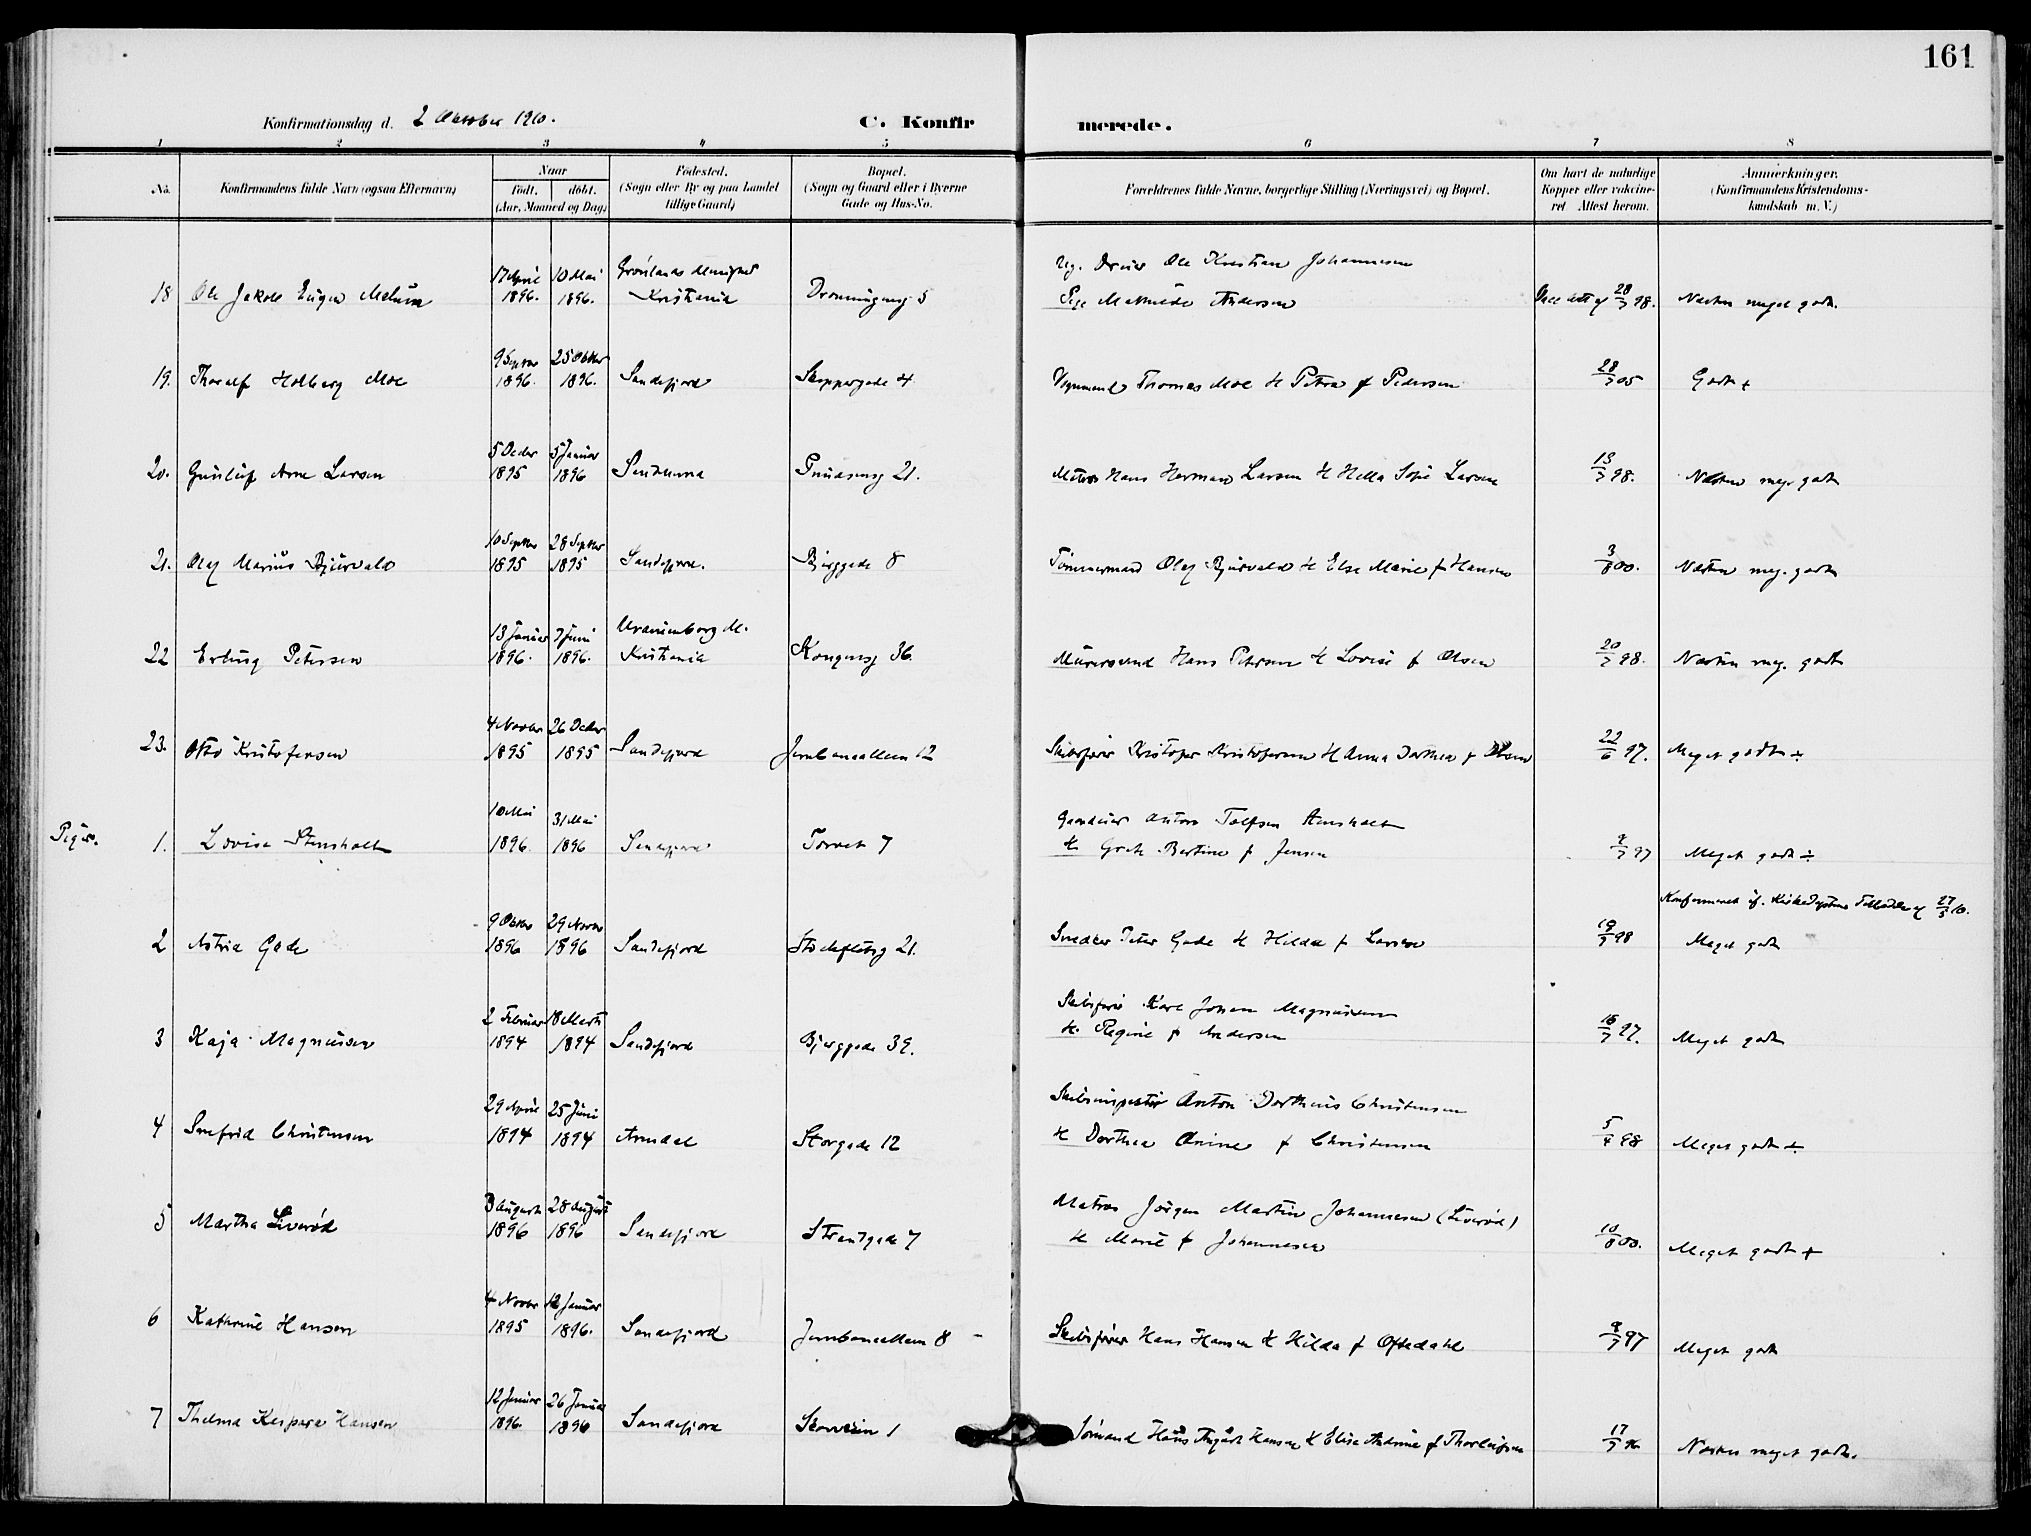 161
Konfirmationsdag d. 2 Oktober 1910.
C. Konfirmerede.
1 2 3 4 5 6 7 8
No. Konfirmandens fulde Navn (ogsaa Efternavn)
Naar
født. døbt.
(Aar, Maaned og Dag)
Fødested.
(Sogn eller By og paa Landet
tillige Gaard)
Bopæl.
(Sogn og Gaard eller i Byerne
Gade og Hus-No.
Forældrenes fulde Navne, borgerlige Stilling (Næringsvei) og Bopæl.
Om havt de naturlige
Kopper eller vakcine-
ret Attest herom.
Anmærkninger.
(Konfirmandens Kristendoms-
kundskab m. V.)
17 April 10 Mai Grønlands Menighed Ug. Ole Kristian Johannesen
18 Ole Jakob 1896. 1896. Kristiania Dronningensg 5 Pige Mathilde Andersen 28/7 98. Næsten meget godt.
9 Septbr 25 Oktbr
19. Thoralf Holberg Moe 1896. 1896. Sandefjord Skippergade 4 Thomas Moe & Petra f Pedersen 28/7 05 Godt +
5 Decbr 5 Januar
20. Gunleif Arne Larsen 1895 1896 21. Hans Herman Larsen & Sofie Larsen 13/7 98. Næsten meg. godt
10 Septbr 28 Septbr
21. Olaf Marius Bjurvald 1895 1895 Sandefjord. Bjerggade 8 Tømmermand Olaf Bjurvald & Else Marie f Hansen 3/8 00. Næsten meg. godt
13 Januar 7 Juni Uranienborg M.
22 Erling Petersen 1896. 1896. Kristiania Kongensg 36. Murersvend Hans Petersen & Lovise f Olsen 20/7 98. Næsten meg. godt
4 Novbr 26 Decbr
23. Otto Kristofersen 1895 1895 Sandefjord Jernbanealleen 12 Skibsfører Kristofer Kristofersen & Anna Dorthea f Olsen 22/6 97. Meget godt ÷
10 Mai 31 Mai Anton Tolfsen Stensholt
Piger. 1. Lovise Stensholt 1896. 1896 Sandefjord Torvet 7 & Grete Bertine f Jensen 9/7 97 Meget godt ÷
Konfirmeret if. 27/5 10.
9 Oktbr 29 Novbr
2 Astrid Gade 1896 1896 Sandefjord 21. Snedker Peter Gade & Hilda f Larsen 19/7 98 Meget godt
2 Februar 18 Marts Skibsfører Karl Johan Magnussen
3 Kaja Magnussen 1894 1894 Sandefjord Bjerggade 39. & Regine f Andersen 16/7 97. Meget godt
29 April 25 Juni Skibsinspektør Anton Dortheus Christensen
4 Snefrid Christensen 1894 1894 Arendal Storgade 12 & Dorthea Anine f Christensen 5/4 98 Meget godt ÷
3 August 28 August Matros Jørgen Martin Johannesen (Liverød)
5 Martha Liverød 1896 1896 Sandefjord Strandgade 7 & Marie f Johannesen 10/8 00. Meget godt +
4 Novbr 12 Januar
6 Kathrine Hansen 1895 1896. Sandefjord Jernbanealleen 8 Skibsfører Hans Hansen & Hilda f Oftedahl 9/7 97 Meget godt
12 Januar 26 Januar
7 Thelma Kaspara Hansen 1896. 1896 Sandefjord 1 Sømand Hans August Hansen & Elise Andrine f Thorleifsen 17/7 96 Næsten meget godt.